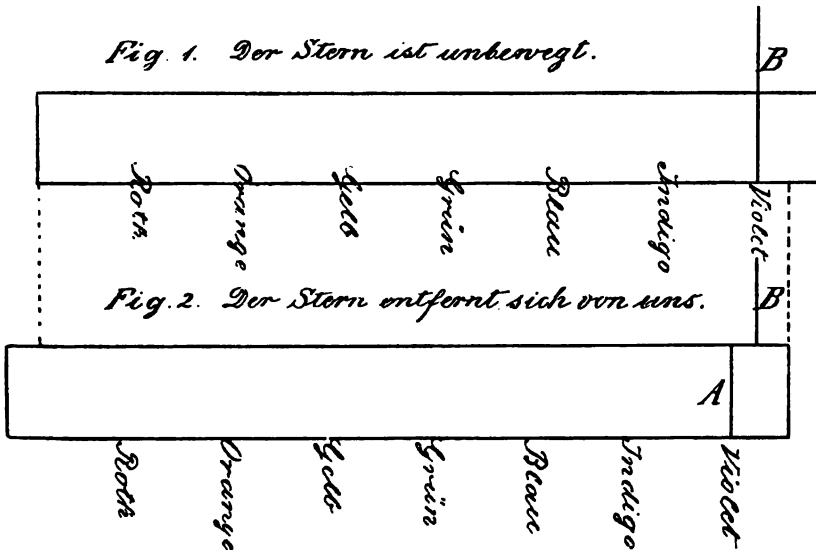 Fig. 1. Der Stern ist unbewegt.
B
Roth.
Orange
Gelb
Grün
Blau
Indigo
Violet
Fig. 2. Der Stern entfernt sich von uns.
B
A
Roth
Orange
Gelb
Grün
Blau
Indigo
Violet